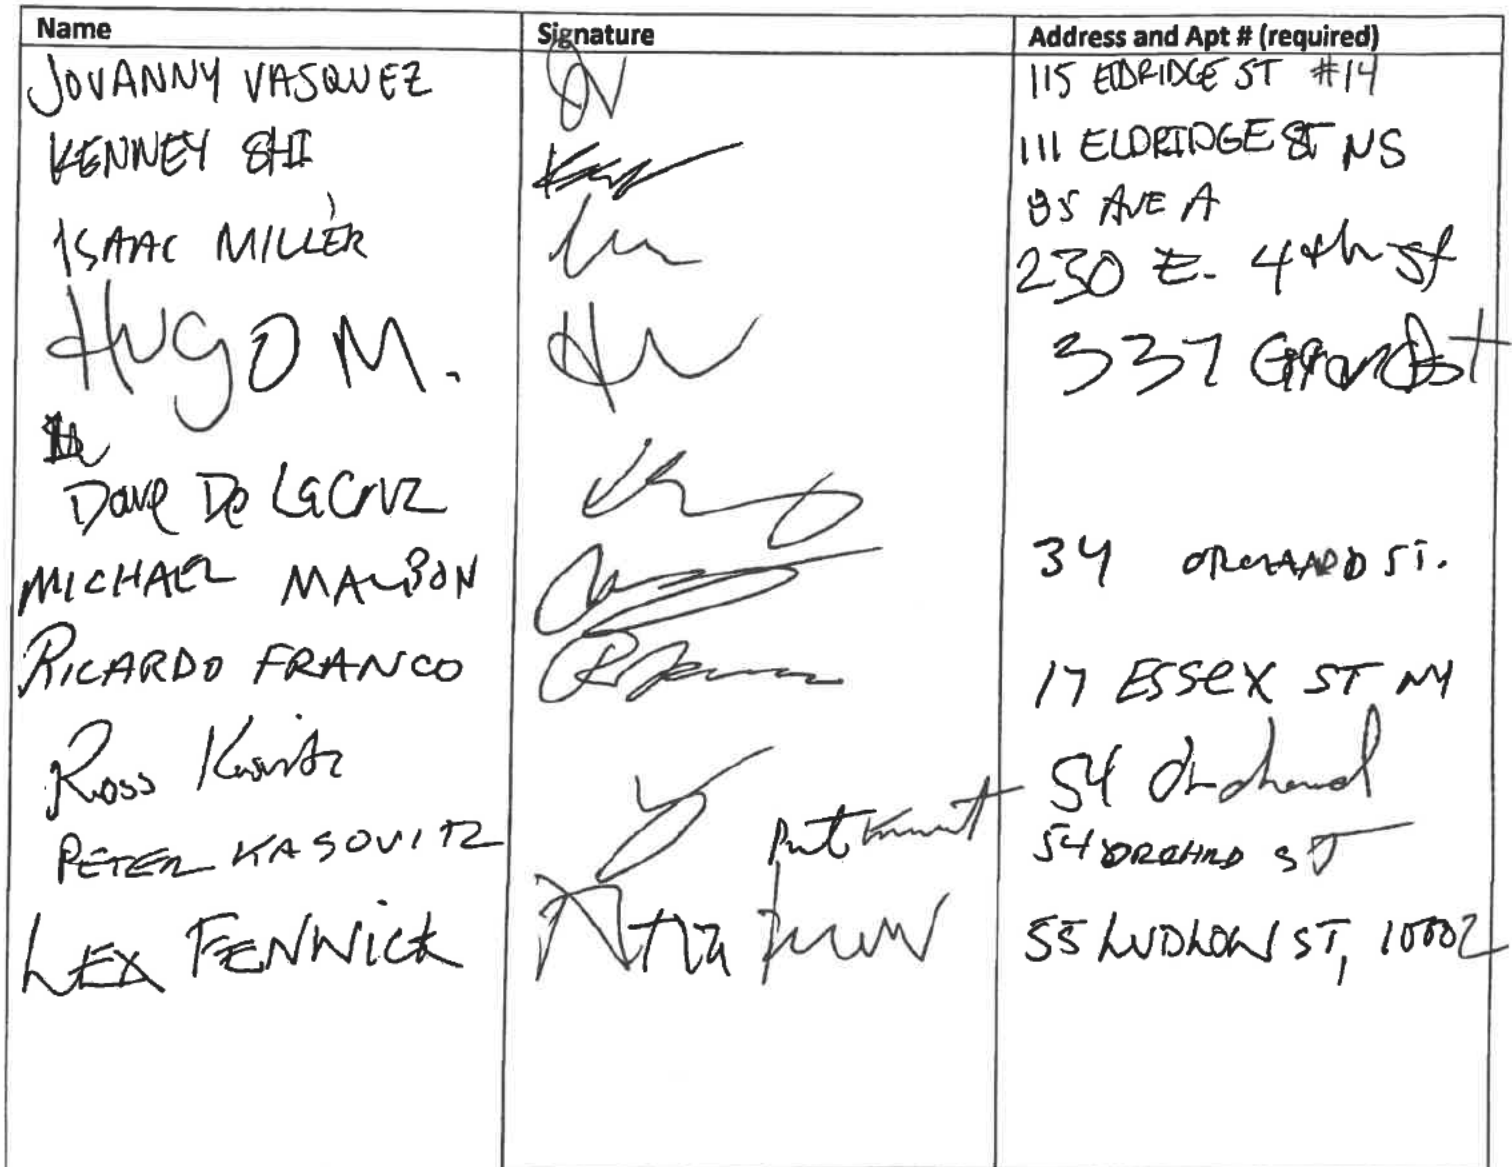 Name Signature Address and Apt # (required)
JOVANNY VASQUEZ JV 115 ELDRIDGE ST #14
KENNEY SHI 111 ELDRIDGE ST NS
85 AVE A
ISAAC MILLER 230 E. 4th st
HUgO M. 337 Grand st
Dave De LaCruz
MICHAEL MALBON 34 ORCHARD ST.
RICARDO FRANCO 17 ESSeX ST NY
Ross 54 Orchard
PETER KASOVITZ 54 ORCHRD ST
LEX FENWICK 55 LUDLOW ST, 10002